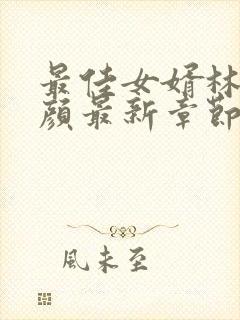 最佳女婿林
顏最新章節
風未至